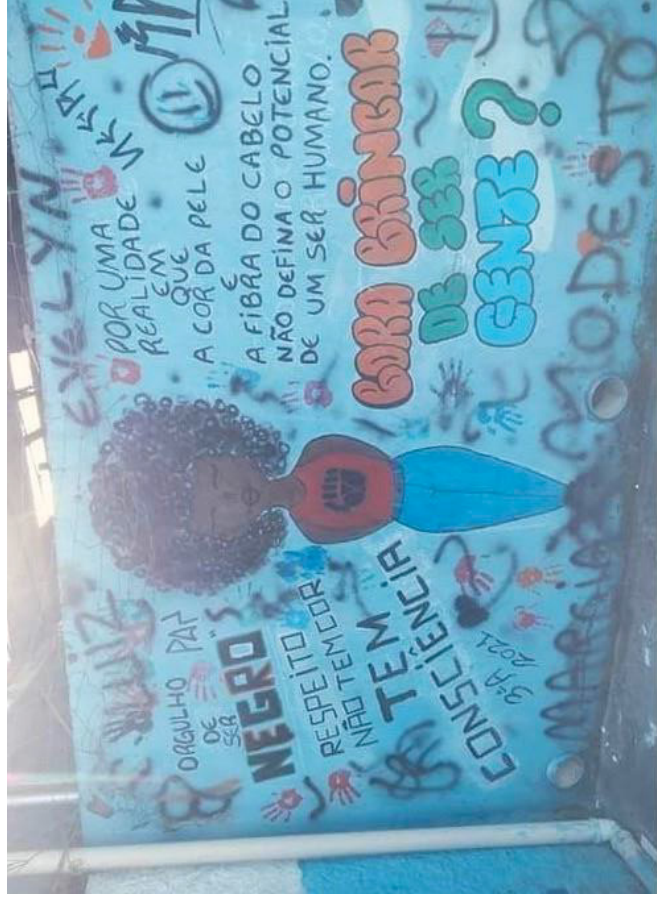 ORGULHO
DE
SER
NEGRO
RESPEITO
NÃO TEM COR
TEM
CONSCIÊNCIA
3ºA
2021
EVELYN
POR UMA
REALIDADE
EM
QUE
A COR DA PELE
E
A FIBRA DO CABELO
NÃO DEFINA O POTENCIAL
DE UM SER HUMANO.
BORA BRINCAR
DE SER
GENTE?
MODESTO